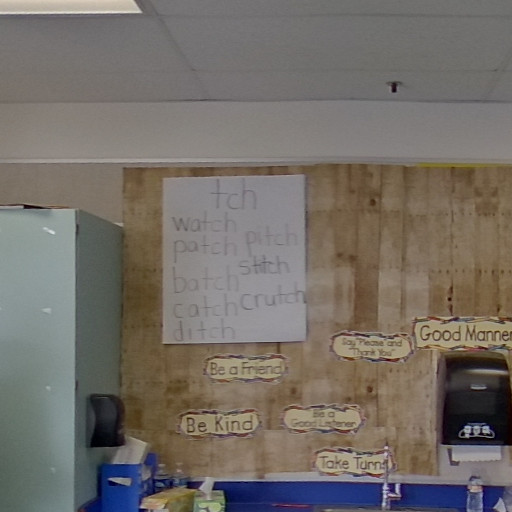 tch
watch
patch pitch
stitch
batch
catch crutch
ditch
Good Manner
Say "Please and
Thank You"
Be a Friend
Be Kind
Be a
Good Listener
Take Turns